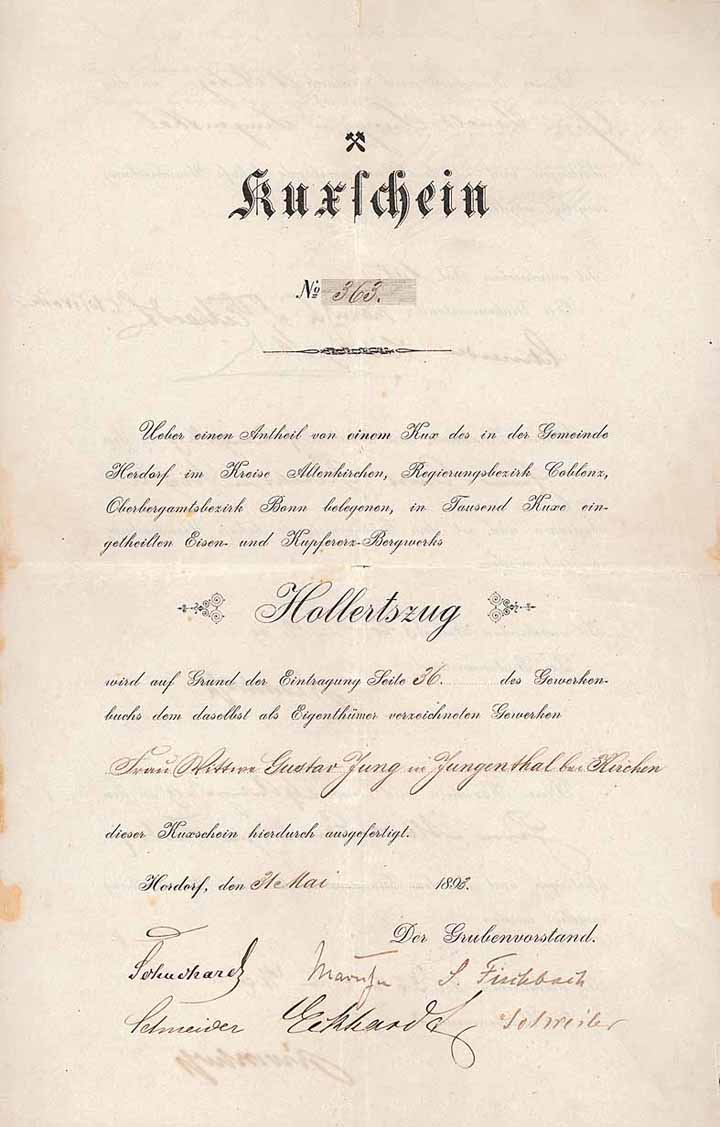 Kuxschein
No 363.
Ueber einen Antheil von einem Kux des in der Gemeinde
Herdorf im Kreise Altenkirchen, Regierungsbezirk Coblenz,
Oberbergamtsbezirk Bonn belegenen, in Tausend Kuxe ein-
getheilten Eisen- und Kupfererz-Bergwerks
Hollertszug
wird auf Grund der Eintragung Seite 36. des Gewerken-
buchs dem daselbst als Eigenthümer verzeichneten Gewerken
Frau Wittwe Gustav Jung in Jungenthal bei Kirchen
dieser Kuxschein hierdurch ausgefertigt.
Herdorf, den 31 Mai 1893.
Der Grubenvorstand.
Schuchard S. Fischbach
Schneider Eckhardt Schreiber